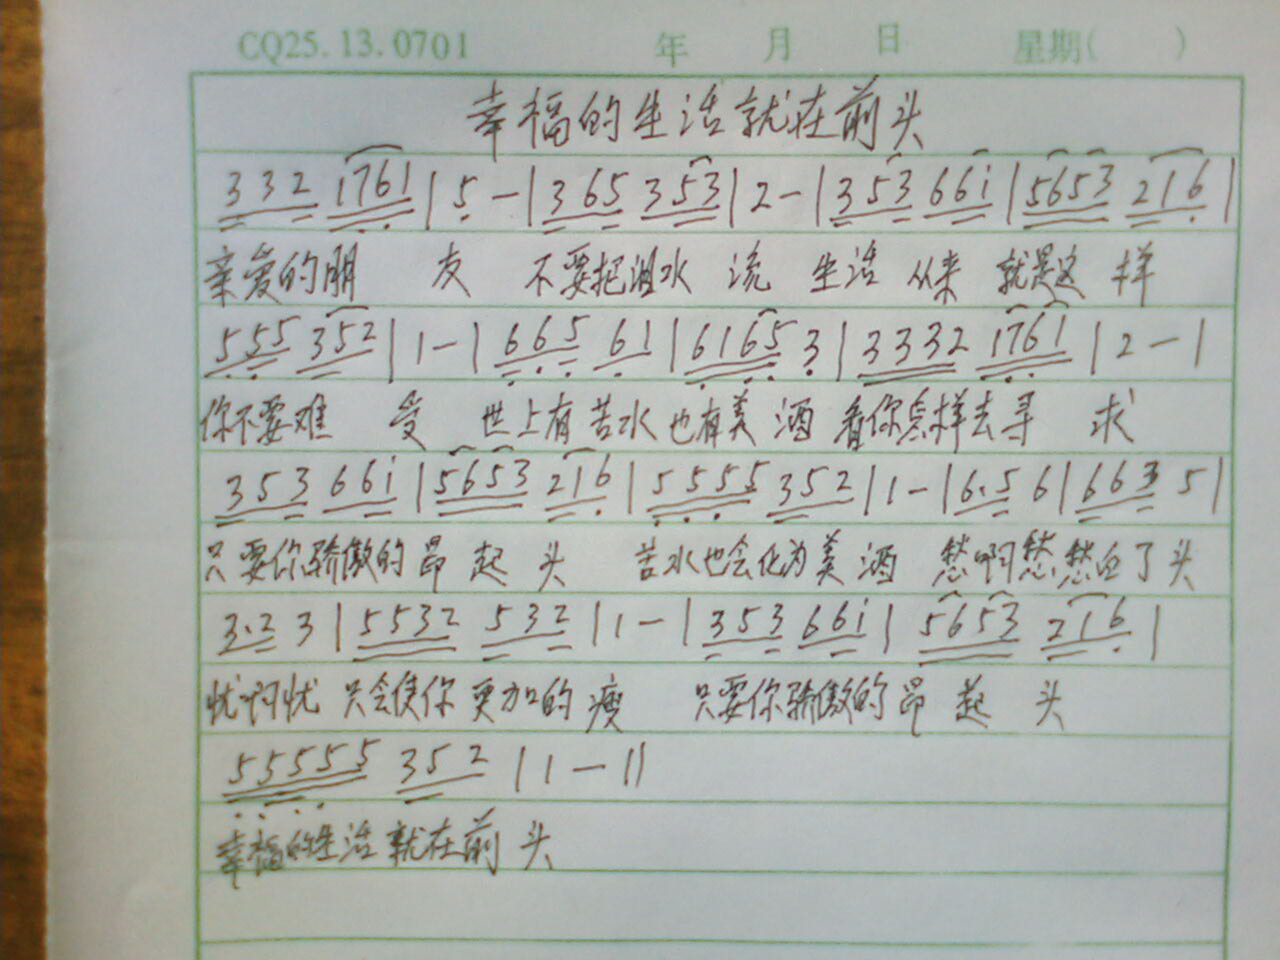 CQ25.13.0701 年 月 日 星期( )
幸福的生活就在前头
3 3 2 1761 | 5 — | 3 65 3 53 | 2 — | 3 53 66i | 5653 216 |
亲爱的朋 友 不要把泪水 流 生活 从来 就是这 样
555 352 | 1 — | 665 61 | 6165 3 | 3332 1761 | 2 — |
你不要难 受 世上有苦水也有美 酒 看你怎样去寻 求
353 66i | 5653 216 | 5555 352 | 1 — | 6.5 6 | 663 5 |
只要你骄傲的昂 起 头 苦水也会化为美 酒 愁啊愁 愁白了头
3.2 3 | 5532 532 | 1 — | 353 66i | 5653 216 |
忧啊忧 只会使你 更加的 瘦 只要你骄傲的昂 起 头
55555 352 | 1 — ||
幸福的生活就在前 头